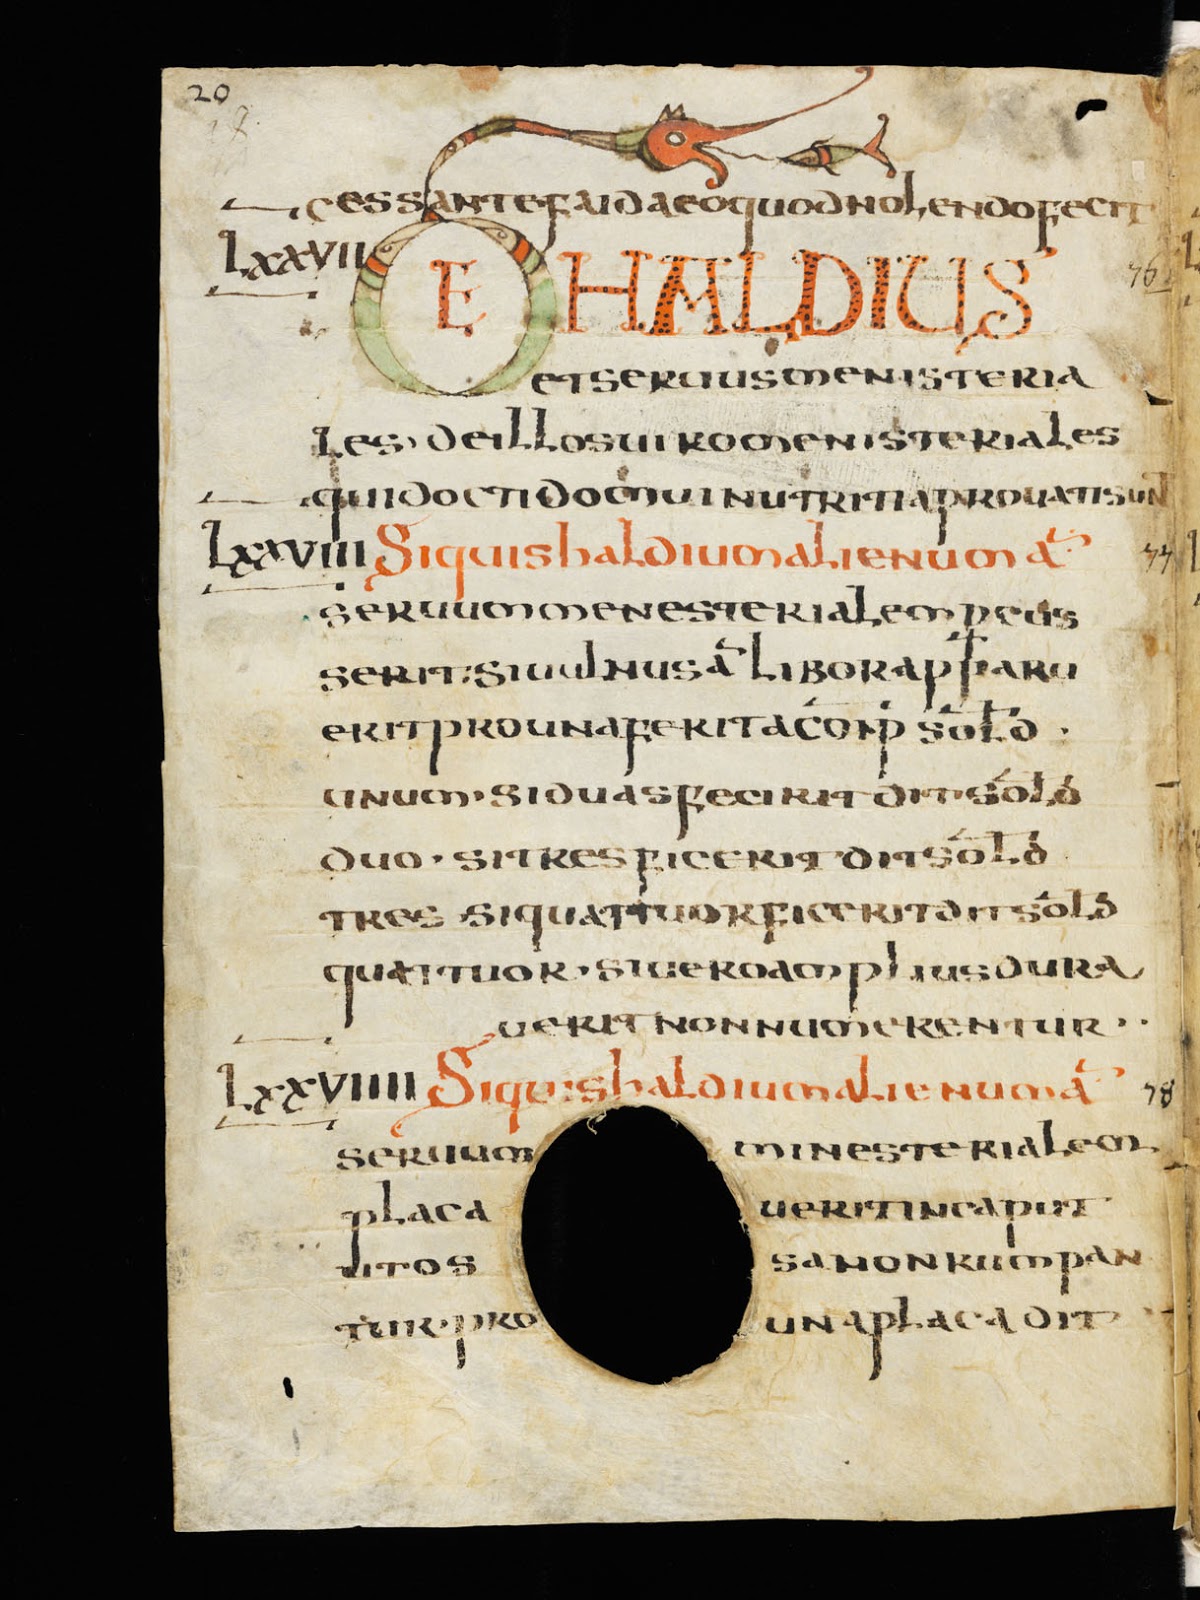 20
cessante faida eo quod nolendo fecit
LXXVII DE HALDIUS 76
et seruus menisteria
les · de illos uiro menisteriales
qui docti domui nutriti aprouati sunt
LXXVIII Siquis haldium alienum aut 77
seruum menesterialem percus
serit; si uulnus aut libor apparu
erit pro una ferita comp sold ·
unum · si duas fecirit dit sold
duo · si tres ficerit dit sold
tres si quattuor ficerit dit sold
quattuor · si uero amplius dura
uerit non numerentur · ·
LXXVIIII Siquis haldium alienum aut 78
seruum minesterialem
placa uerit in caput
ut os sa non rumpan
tur · pro una placa dit